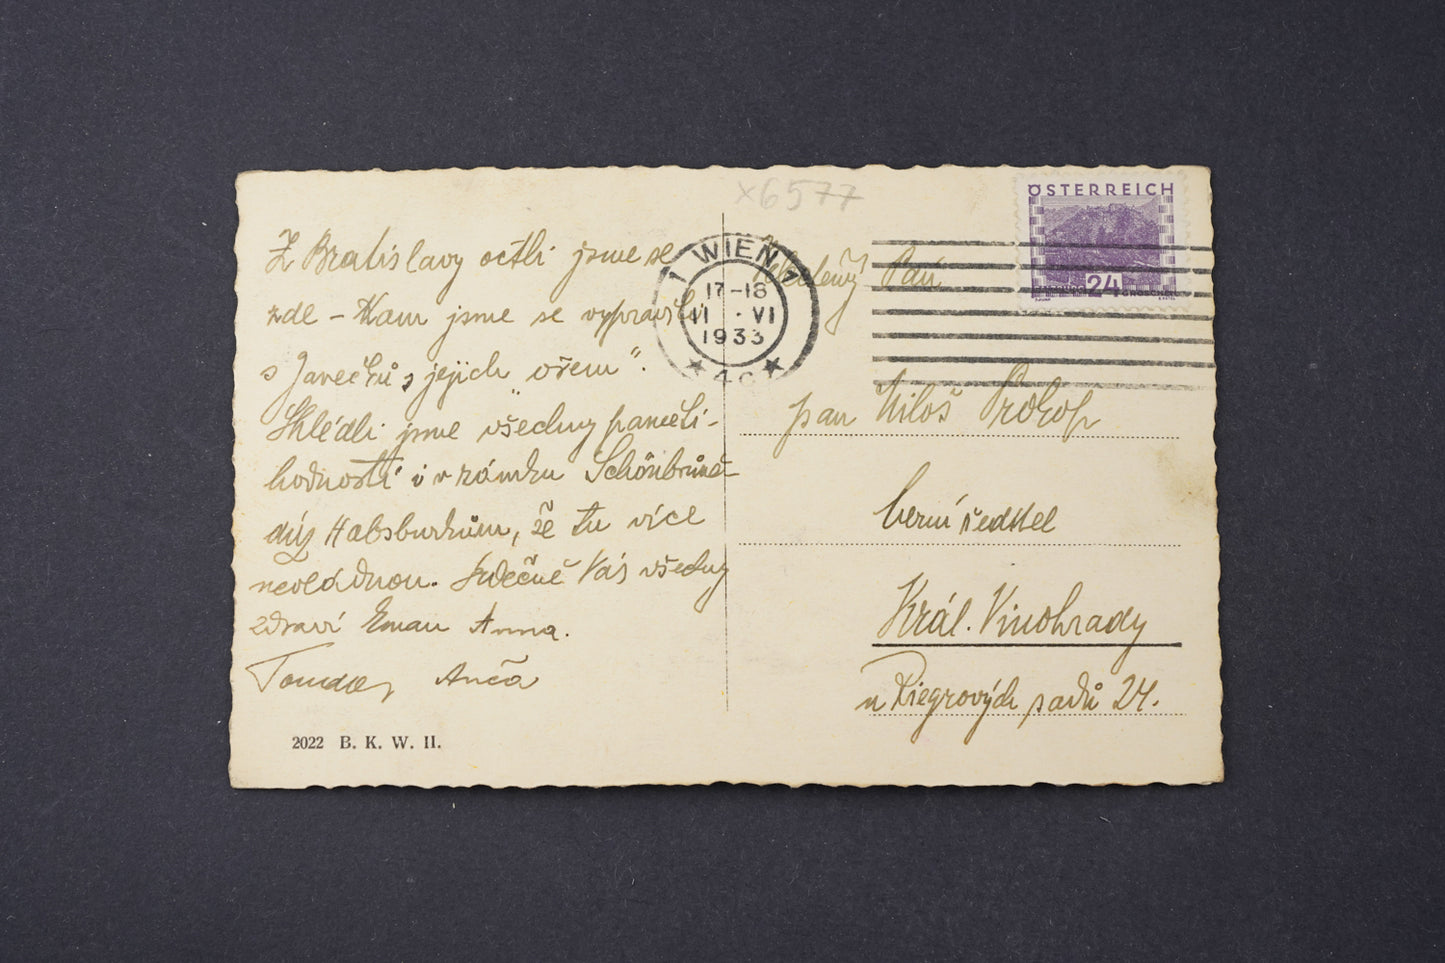 x6577
ÖSTERREICH
24
GROSCHEN
1 WIEN 1
17-18
11 · VI
1933
★ 4c ★
Z Bratislavy octli jsme se
zde – Kam jsme se vypravili
s Javečků s jejich "ořem".
Shlédli jsme všechny paměti-
hodnosti i v zámku Schönbruně
díky Habsburkům, že tu více
nevládnou. Srdečně Vás všechny
zdraví Eman Anna.
Anča
2022 B. K. W. II.
Vážený Pán
pan Miloš Prokop
berní ředitel
Král. Vinohrady
u Riegrových sadů 24.